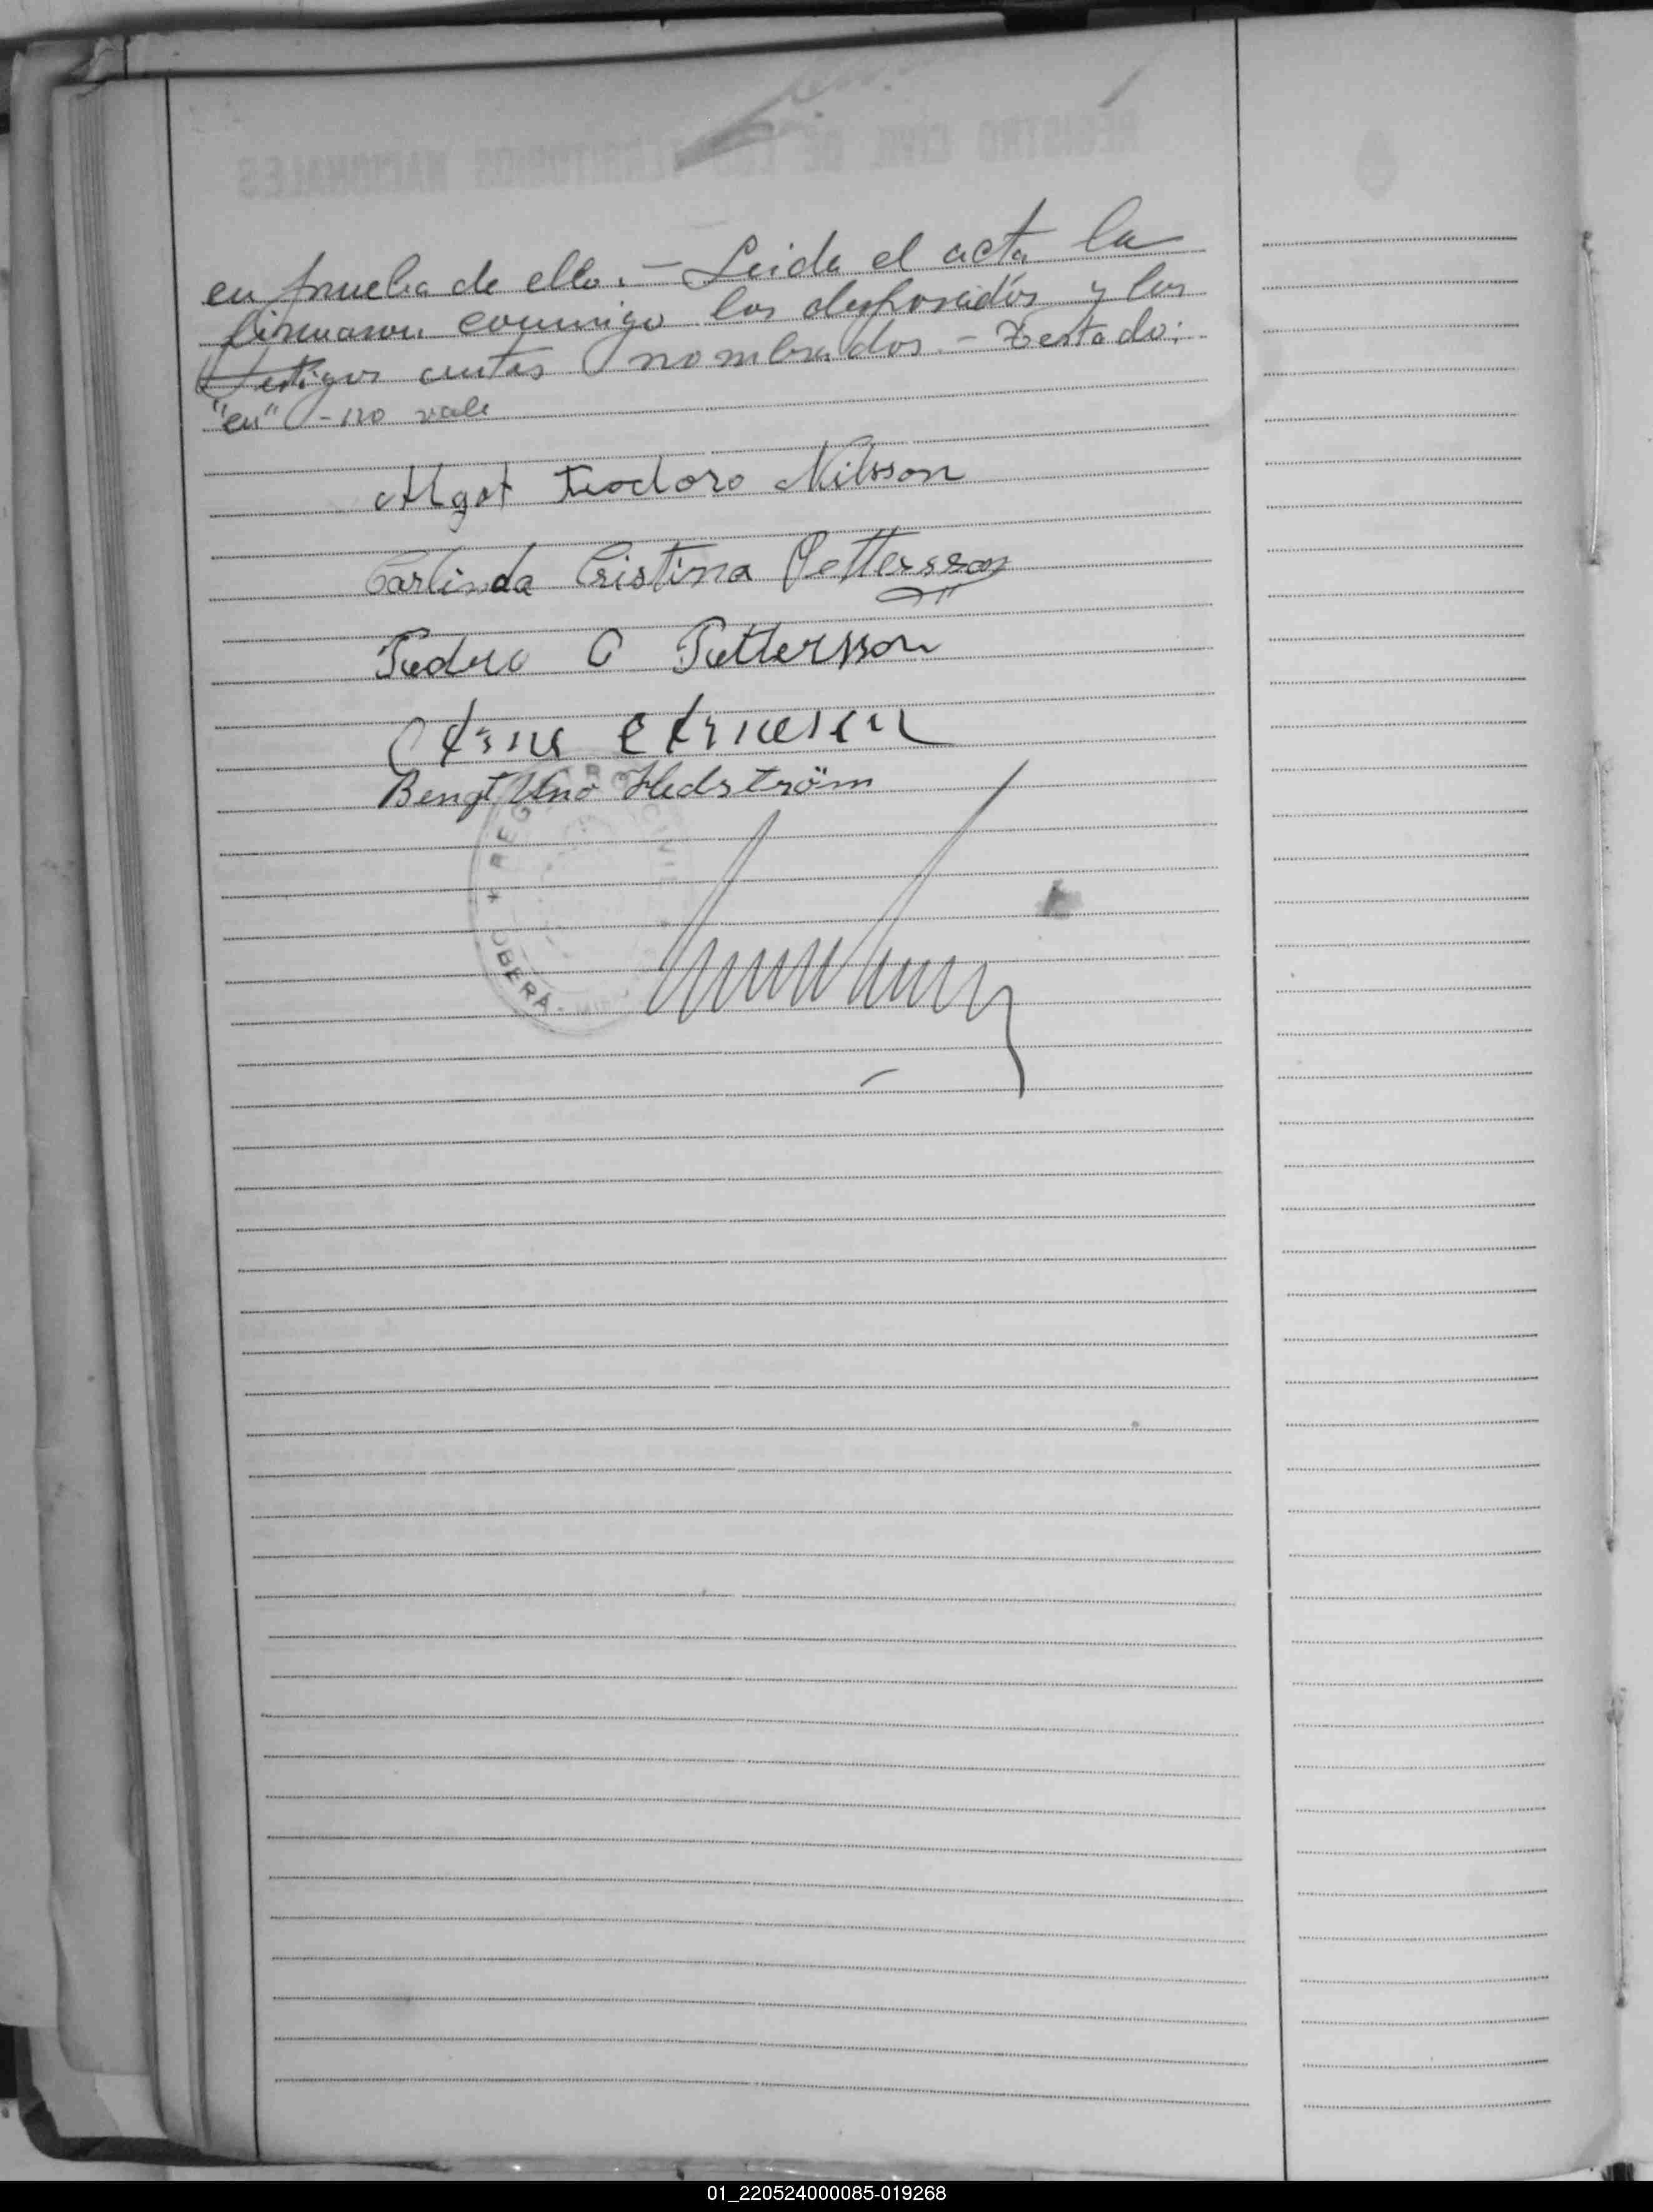 en prueba de ello.- Leida el acta la
firmaron conmigo los desposados y los
testigos antes nombrados.- Testado:
"en" - no vale
Algot Teodoro Nilsson
Carlinda Cristina Pettersson
Pedro O Pettersson
Bengt Uno Hedström
REGISTRO CIVIL
OBERÁ
01_220524000085-019268